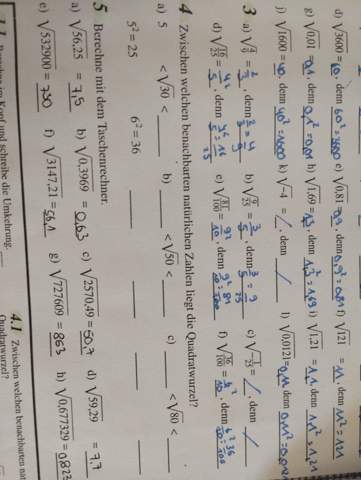 d) √3600 = 60, denn 60² = 3600 e) √0,81 = 0,9, denn 0,9² = 0,81 f) √121 = 11, denn 11² = 121
g) √0,01 = 0,1, denn 0,1² = 0,01 h) √1,69 = 1,3, denn 1,3² = 1,69 i) √1,21 = 1,1, denn 1,1² = 1,21
j) √1600 = 40, denn 40² = 1600 k) √-4 = /, denn / l) √0,0121 = 0,11, denn 0,11² = 0,0121
3 a) √4/9 = 2/3, denn b) √9/25 = 3/5, denn c) √-1/25 = /, denn /
d) √16/25 = denn e) √81/100 = denn f) √36/100 = denn
4 Zwischen welchen benachbarten natürlichen Zahlen liegt die Quadratwurzel?
a) 5 < √30 < ___ b) ___ < √50 < ___ c) ___ < √80 < ___
5² = 25 6² = 36
5 Berechne mit dem Taschenrechner.
a) √56,25 = 7,5 b) √0,3969 = 0,63 c) √2570,49 = 50,7 d) √59,29 = 7,7
e) √532900 = 730 f) √3147,21 = 56,1 g) √727609 = 853 h) √0,677329 = 0,823
im Kopf und schreibe die Umkehrung.
4.1 Zwischen welchen benachbarten nat
Quadratwurzel?